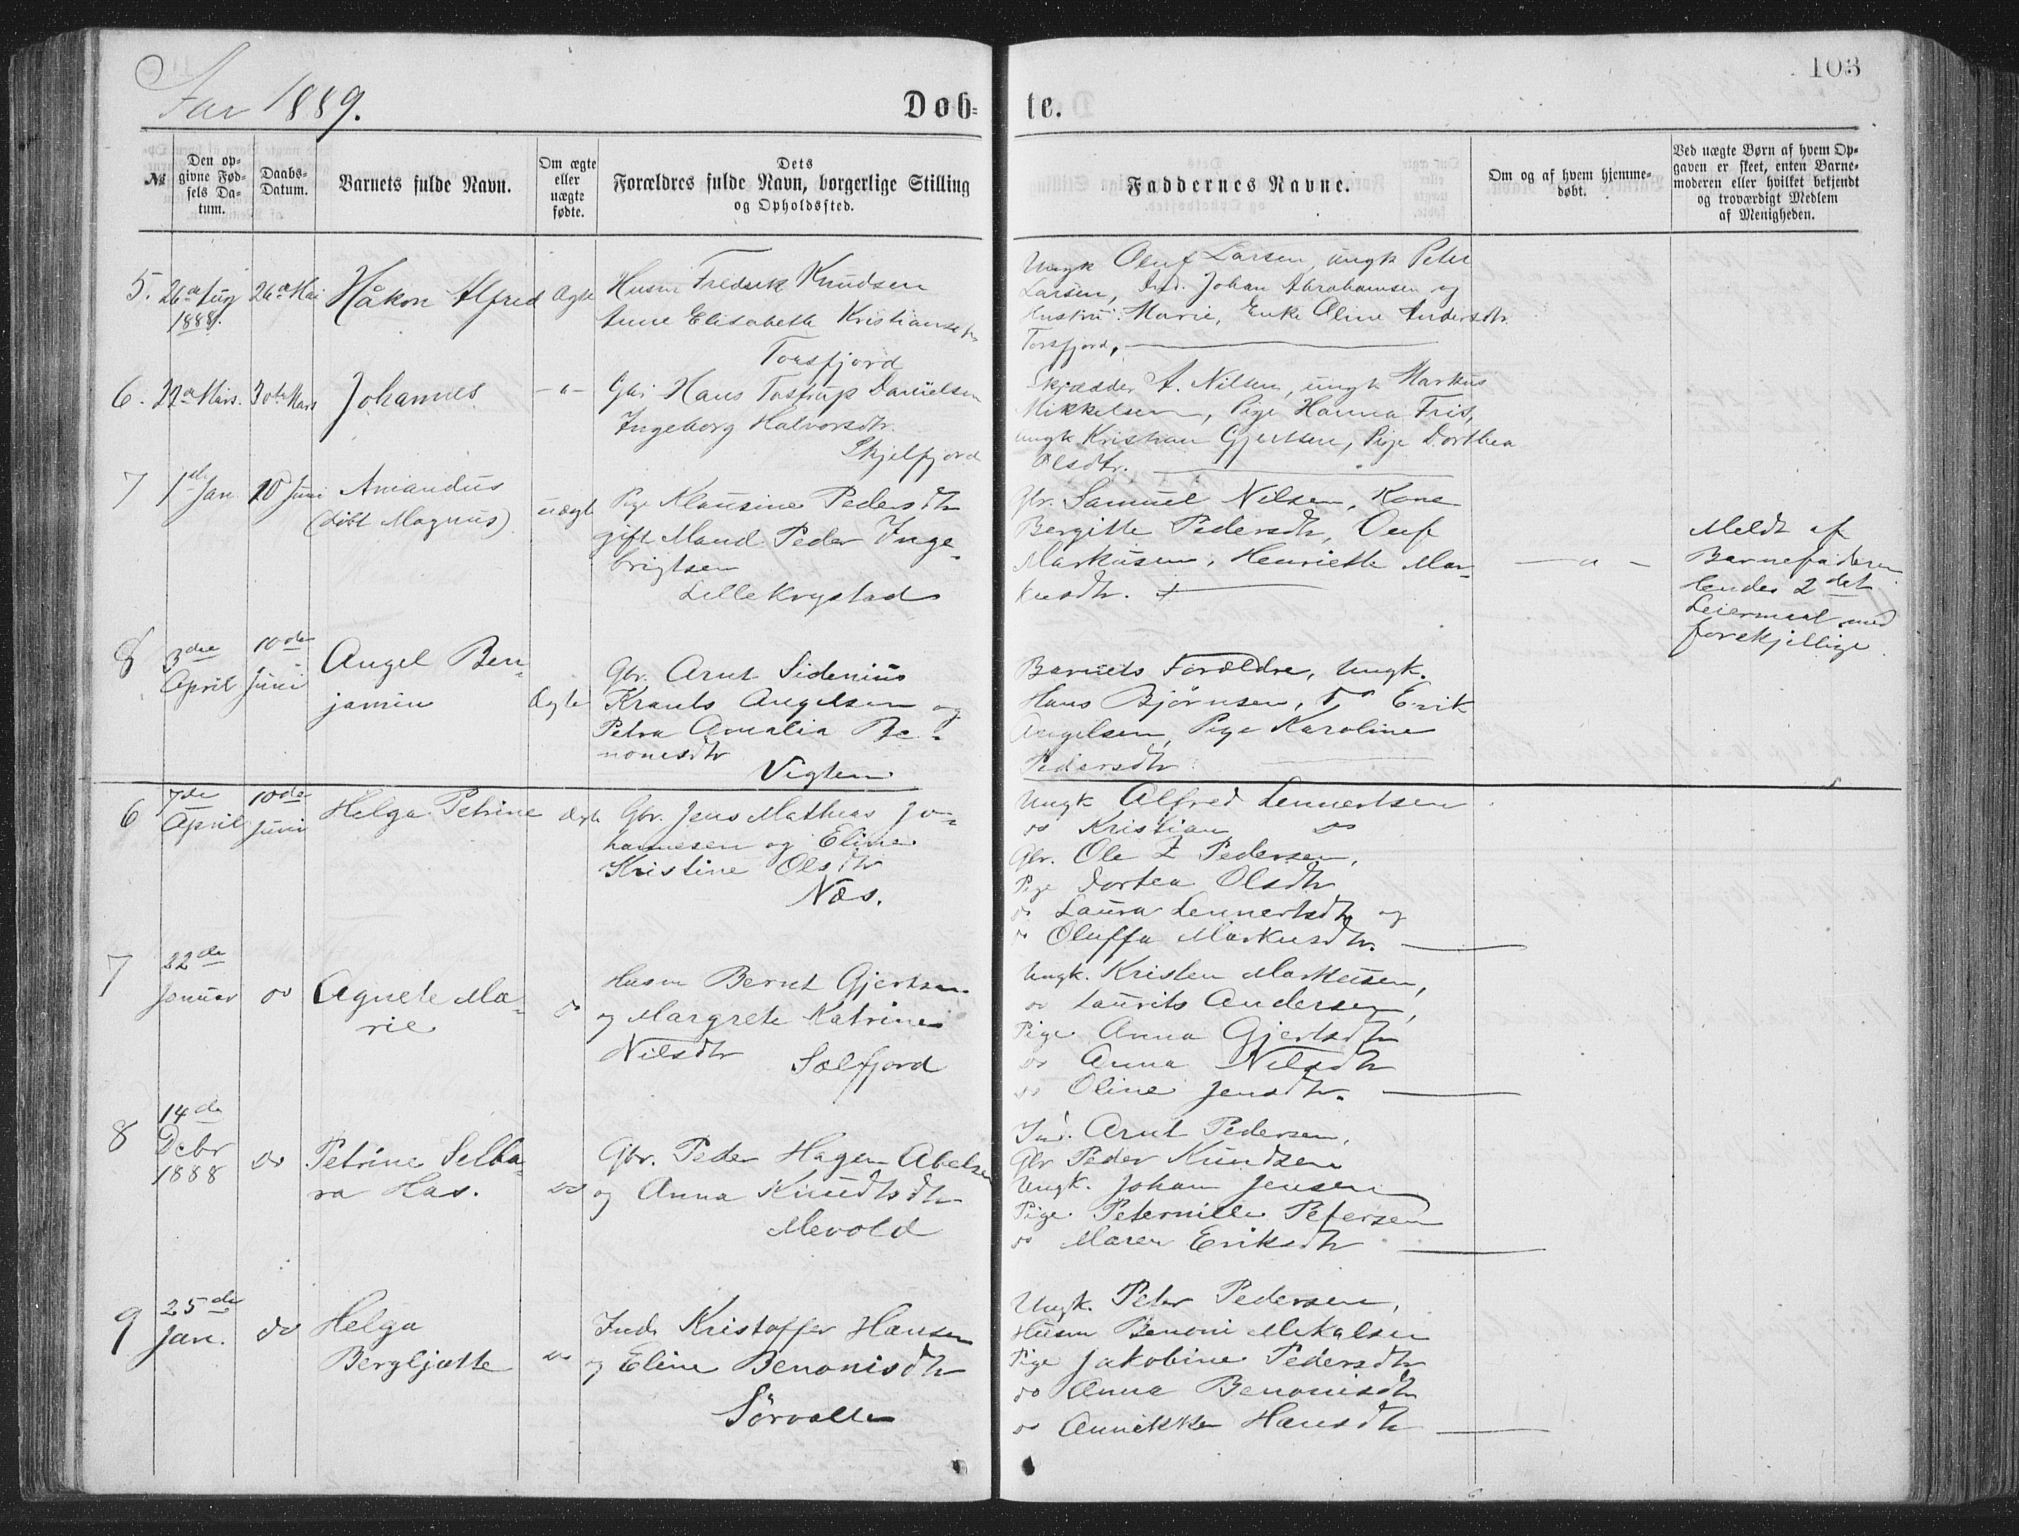 103
Aar 1889.
Døb-
te.
№
Den op-
givne Fød-
sels Da-
tum.
Daabs-
Datum.
Barnets fulde Navn.
Om ægte
eller
uægte
fødte.
Dets
Forældres fulde Navn, borgerlige Stilling
og Opholdssted.
Faddernes Navne.
Om og af hvem hjemme-
døbt.
Ved uægte Børn af hvem Op-
gaven er skeet, enten Barne-
moderen eller hvilket betjendt
og troværdigt Medlem
af Menigheden.
5.
26de Aug
1888.
26de Mai
Håkon Alfred
Ægte
Husm Fredrik Knudsen
Anne Elisabeth Kristiansdtr
Torsfjord
Ungk Oluf Larsen, ungk Peter
Larsen, Ind. Johan Abrahamsen og
Hustru Marie, Enke Oline Andersdtr
Torsfjord,
6.
22de Mars.
30te Mars
Johannes
-"-
Gbr Hans Tostrup Danielsen
Ingeborg Halvorsdtr.
Skjelfjord
Skrædder A. Nilsen, ungk Markus
Mikkelsen, Pige Hanna Friis,
ungk Kristian Gjertsen, Pige Dorthea
Olsdtr.
7
1ste Jan.
10 Juni
Amandus
(døbt Magnus)
uægte
Pige Klausine Pedersdtr
gift Mand Peder Inge-
brigtsen
Lille Krystad
Gbr. Samuel Nilsen, Kone
Bergitte Pedersdtr, Oluf
Markusen, Henriette Mar-
kusdtr. +
— " —
Meldt af
Barnefaderen
hendes 2det
Leiermaal med
forskjellige.
8
3die
April
10de
Juni
Angel Ben-
jamin
Ægte
Gbr. Arnt Sidenius
Krants Angelsen og
Petra Amalia Be-
nonisdtr
Vigten
Barnets Forældre, Ungk.
Hans Bjørnsen, Do Erik
Angelsen, Pige Karoline
Pedersdtr.
6
7de
April
10de
Juni
Helga Petrine
Ægte
Gbr. Jens Mathias Jo-
hannesen og Eline
Kristine Olsdtr
Næs.
Ungk Alfred Lennertsen
do Kristian do
Gbr. Ole Z Pedersen,
Pige Dortea Olsdtr
do Laura Lennertsdtr og
do Oluffa Markusdtr.
7
22de
Januar
do
Agnete Ma-
rie
do
Husm Bernt Gjertsen
og Margrete Katrine
Nilsdtr
Solfjord
Ungk. Kristen Markusen,
do Laurits Andersen,
Pige Anna Gjertsdtr
do Anna Nilsdtr
do Oline Jensdtr.
8
14de
Debr
1888
do
Petrine Selba-
ra Has.
do
Gbr. Peder Hagen Abelsen
og Anna Knudtsdtr
Mevold
Ind. Arnt Pedersen,
Gbr Peder Knudsen
Ungk. Johan Jensen
Pige Peternille Petersen
do Maren Eriksdtr
9
25de
Jan.
do
Helga
Bergljotte
do
Inds Kristoffer Hansen
og Eline Benonisdtr
Sørvolle
Ungk. Peter Pedersen,
Husm Benoni Mikalsen
Pige Jakobine Pedersdtr
do Anna Benonisdtr
do Annikken Hansdtr